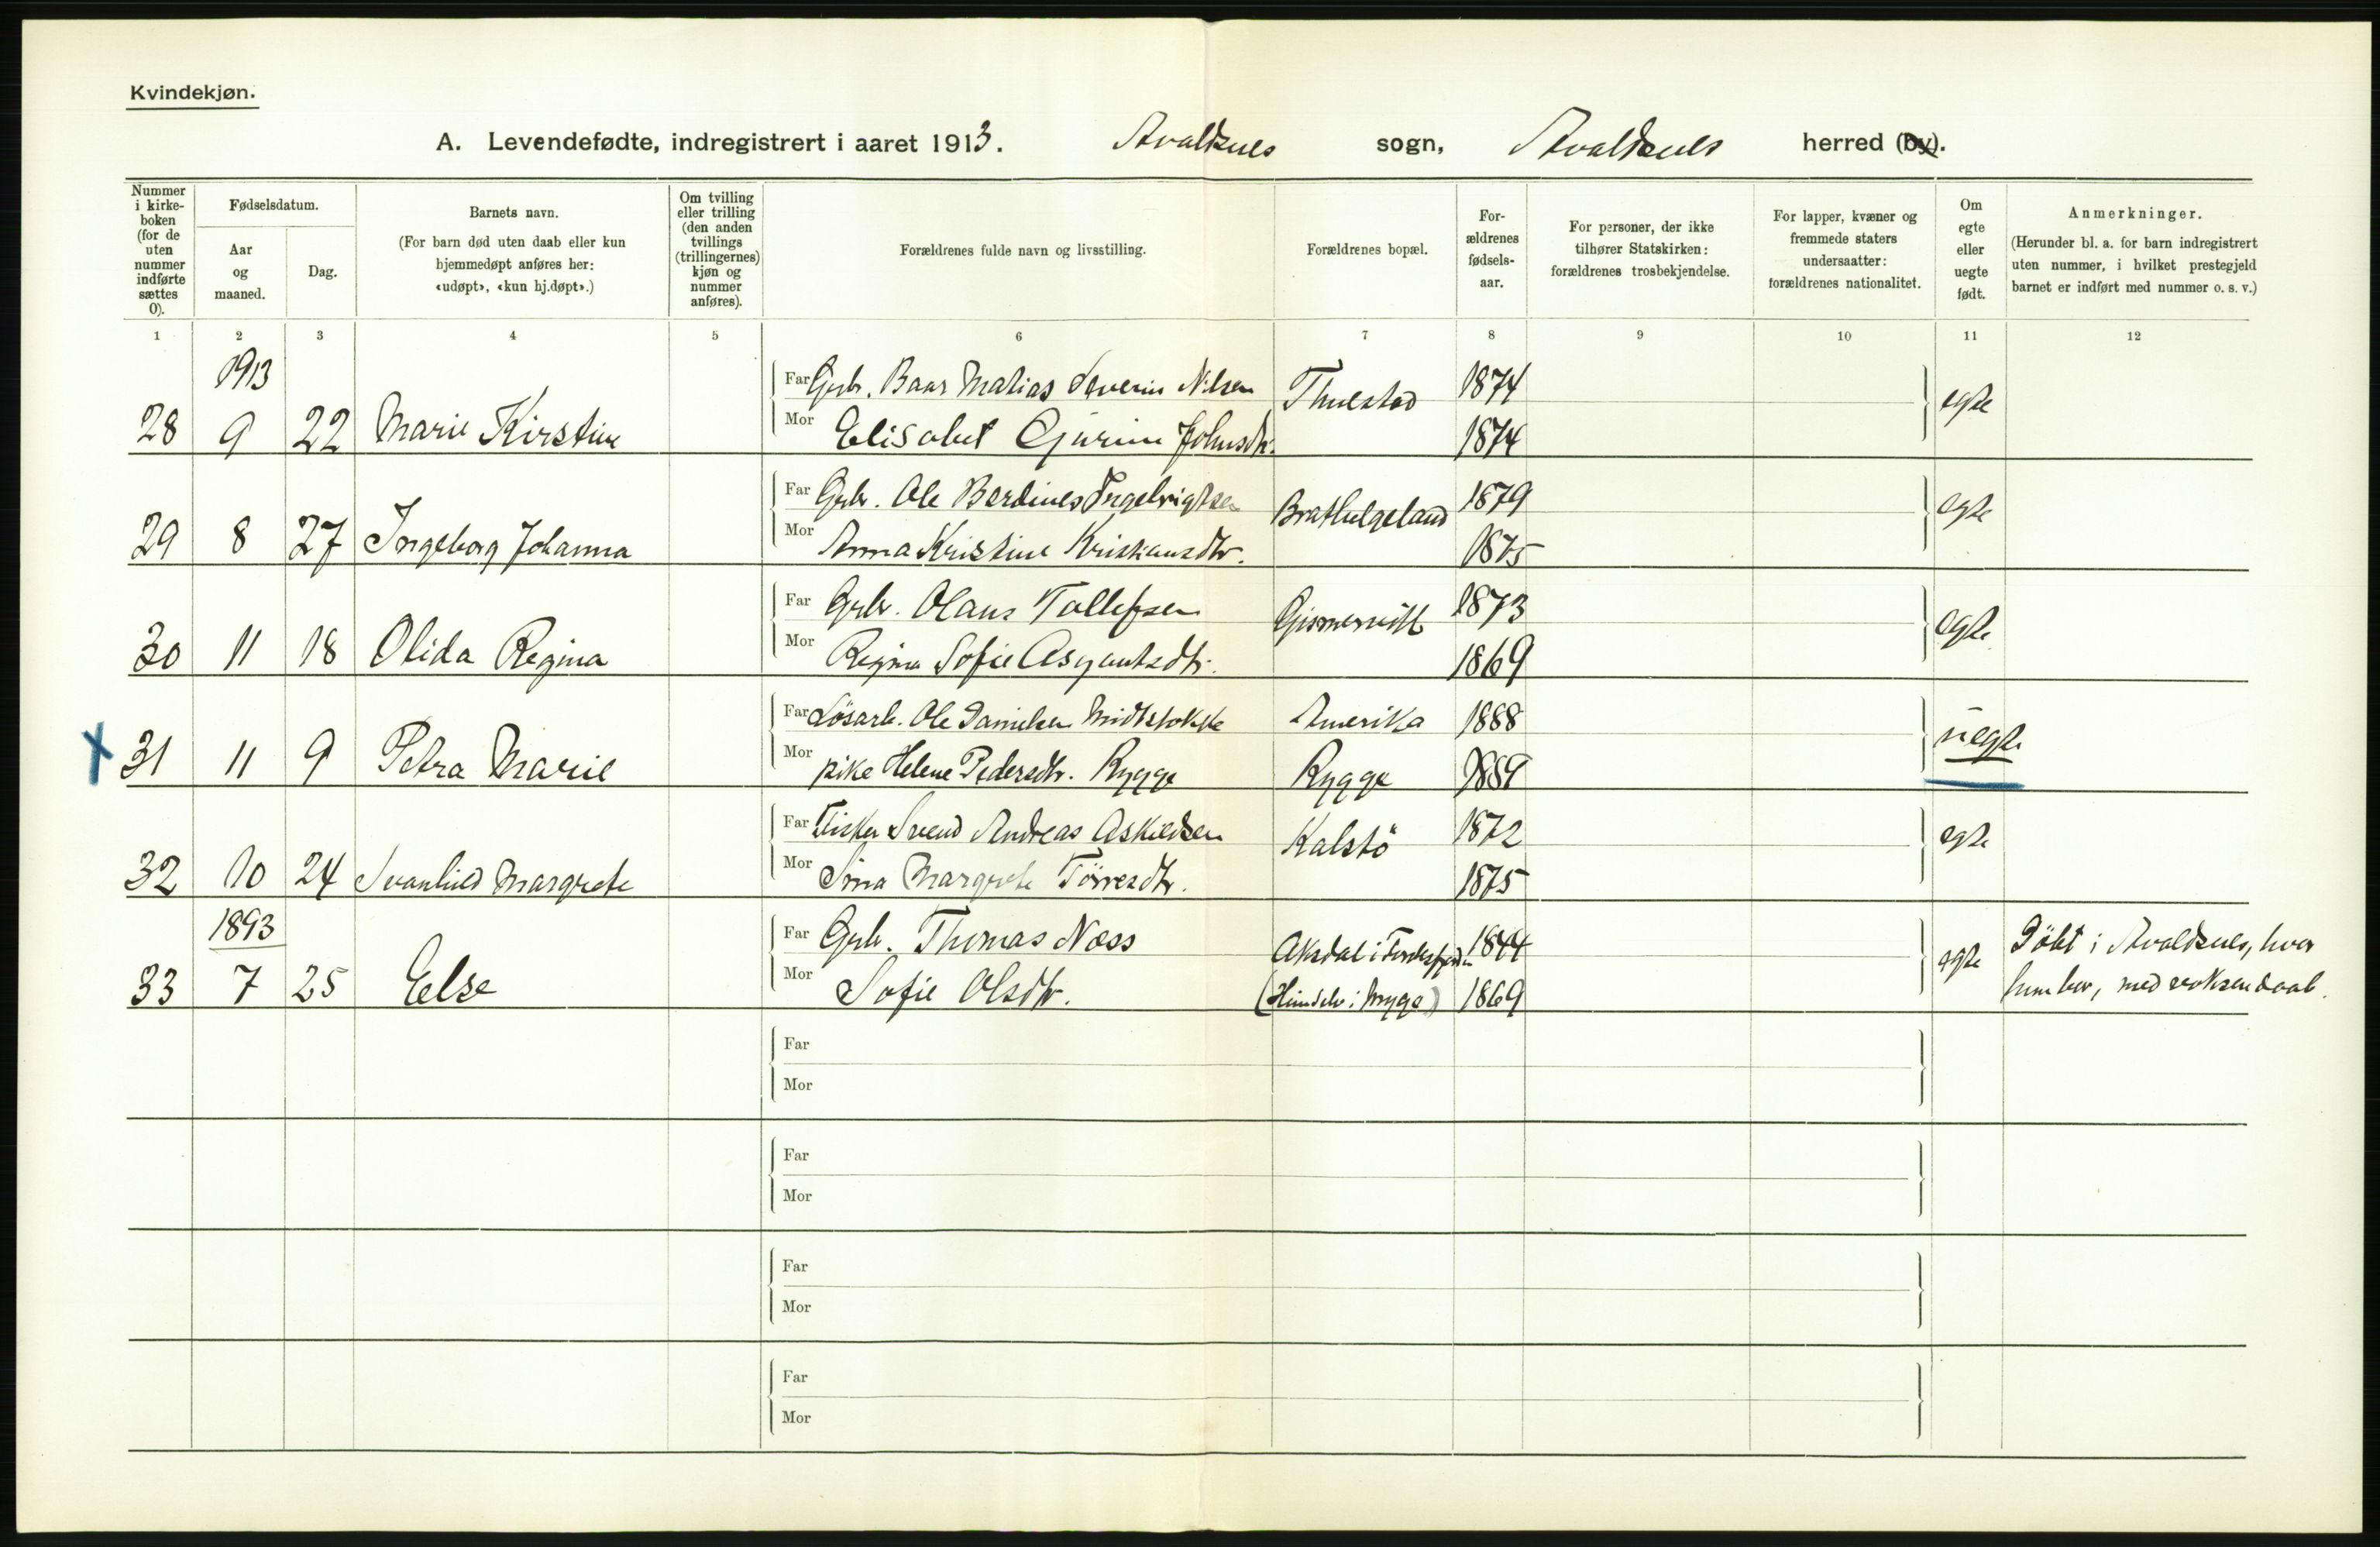 Kvindekjøn.
A. Levendefødte, indregistrert i aaret 1913. Avaldsnes sogn, Avaldsnes herred (by).
Nummer i kirke-boken (for de uten nummer indførte sættes 0).
Fødselsdatum.
Aar og maaned.
Dag.
Barnets navn.
(For barn død uten daab eller kun hjemmedøpt anføres her: «udøpt», «kun hj.døpt».)
Om tvilling eller trilling (den anden tvillings (trillingernes) kjøn og nummer anføres).
Forældrenes fulde navn og livsstilling.
Forældrenes bopæl.
For-ældrenes fødsels-aar.
For personer, der ikke tilhører Statskirken: forældrenes trosbekjendelse.
For lapper, kvæner og fremmede staters undersaatter: forældrenes nationalitet.
Om egte eller uegte født.
Anmerkninger.
(Herunder bl. a. for barn indregistrert uten nummer, i hvilket prestegjeld barnet er indført med nummer o. s. v.)
1 2 3 4 5 6 7 8 9 10 11 12
1913
Far Grbr. Baar Matias Severin Nilsen Thuestad 1874 egte
28 9 22 Marie Kirstine Mor Elisabet Gurine Johnsdtr. 1874
Far Grbr. Ole Berdines Ingebrigtsen Brathelgeland 1879 egte
29 8 27 Ingeborg Johanna Mor Anna Kristine Kristiansdtr. 1875
Far Grbr. Olaus Tollefsen Gismervik 1873 egte
30 11 18 Olida Regina Mor Regina Sofie Asgautsdtr. 1869
Far Løsarb. Ole Danielsen Midtstokke Amerika 1888 uegte
X 31 11 9 Petra Marie Mor pike Helene Pedersdtr. Rygge Rygge
Far Fisker Svend Andreas Askildsen Kalstö 1872 egte
32 10 24 Svanhild Margrete Mor Sina Margrete Törresdtr. 1875
1893
Far Grbr. Thomas Næss Aksdal i 1844 egte Döbt i Avaldsnes, hvor
33 7 25 Else Mor Sofie Olsdtr. 1869 hun bor, med voksendaab.
Far
Mor
Far
Mor
Far
Mor
Far
Mor